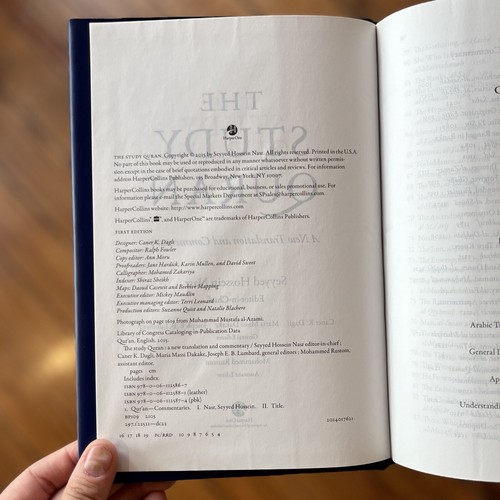 HarperOne
THE STUDY QURAN. Copyright © 2015 by Seyyed Hossein Nasr. All rights reserved. Printed in the U.S.A.
No part of this book may be used or reproduced in any manner whatsoever without written permis-
sion except in the case of brief quotations embodied in critical articles and reviews. For information
address HarperCollins Publishers, 195 Broadway, New York, NY 10007.
HarperCollins books may be purchased for educational, business, or sales promotional use. For
information please e-mail the Special Markets Department at SPsales@harpercollins.com.
HarperCollins website: http://www.harpercollins.com
HarperCollins®, and HarperOne™ are trademarks of HarperCollins Publishers.
FIRST EDITION
Designer: Caner K. Dagli
Compositor: Ralph Fowler
Copy editor: Ann Moru
Proofreaders: Jane Hardick, Karin Mullen, and David Sweet
Calligrapher: Mohamed Zakariya
Indexer: Shiraz Sheikh
Maps: Daoud Casewit and Beehive Mapping
Executive editor: Mickey Maudlin
Executive managing editor: Terri Leonard
Production editors: Suzanne Quist and Natalie Blachere
Photograph on page 1619 from Muhammad Mustafa al-Azami.
Library of Congress Cataloging-in-Publication Data
Qur'an. English. 2015.
The study Quran : a new translation and commentary / Seyyed Hossein Nasr editor-in-chief ;
Caner K. Dagli, Maria Massi Dakake, Joseph E. B. Lumbard, general editors ; Mohammed Rustom,
assistant editor.
pages cm
Includes index.
ISBN 978-0-06-112586-7
ISBN 978-0-06-112588-1 (leather)
ISBN 978-0-06-112587-4 (pbk)
1. Qur'an—Commentaries. I. Nasr, Seyyed Hossein. II. Title.
BP109 2015
297.1'22521—dc23 2014017621
16 17 18 19 PC/RRD 10 9 8 7 6 5 4
Arabic
General
Understandin